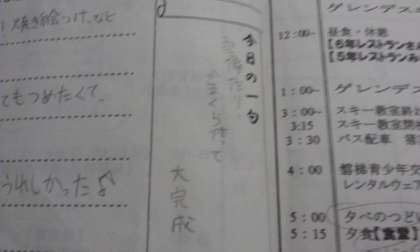 焼き絵つけ、など
てもつめたくて、
うれしかったよ
今日の一句
かまくら作って
大完成
グレンデス
12:00~ 昼食・休憩
【6年レストランさ
【5年レストランみ
1:00~ グレンデ
3:00~ スキー教室終
3:15 スキー教室閉
3:30 バス配車
4:00 磐梯青少年交
レンタルウェア
5:00 夕べのつど
5:15 夕食【食堂】